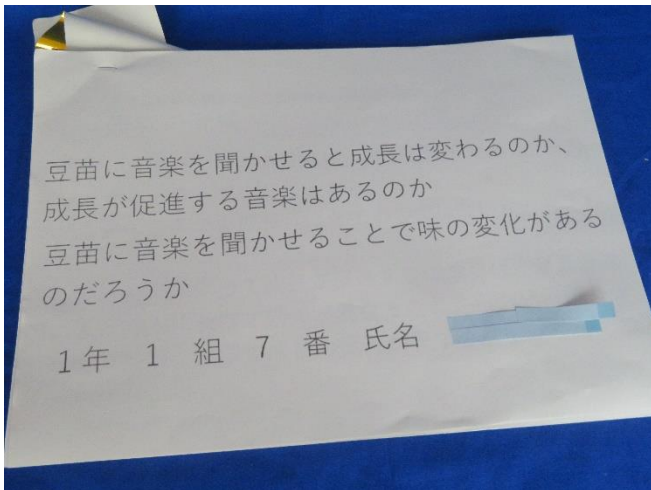 豆苗に音楽を聞かせると成長は変わるのか、
成長が促進する音楽はあるのか
豆苗に音楽を聞かせることで味の変化がある
のだろうか
1年 1 組 7 番 氏名